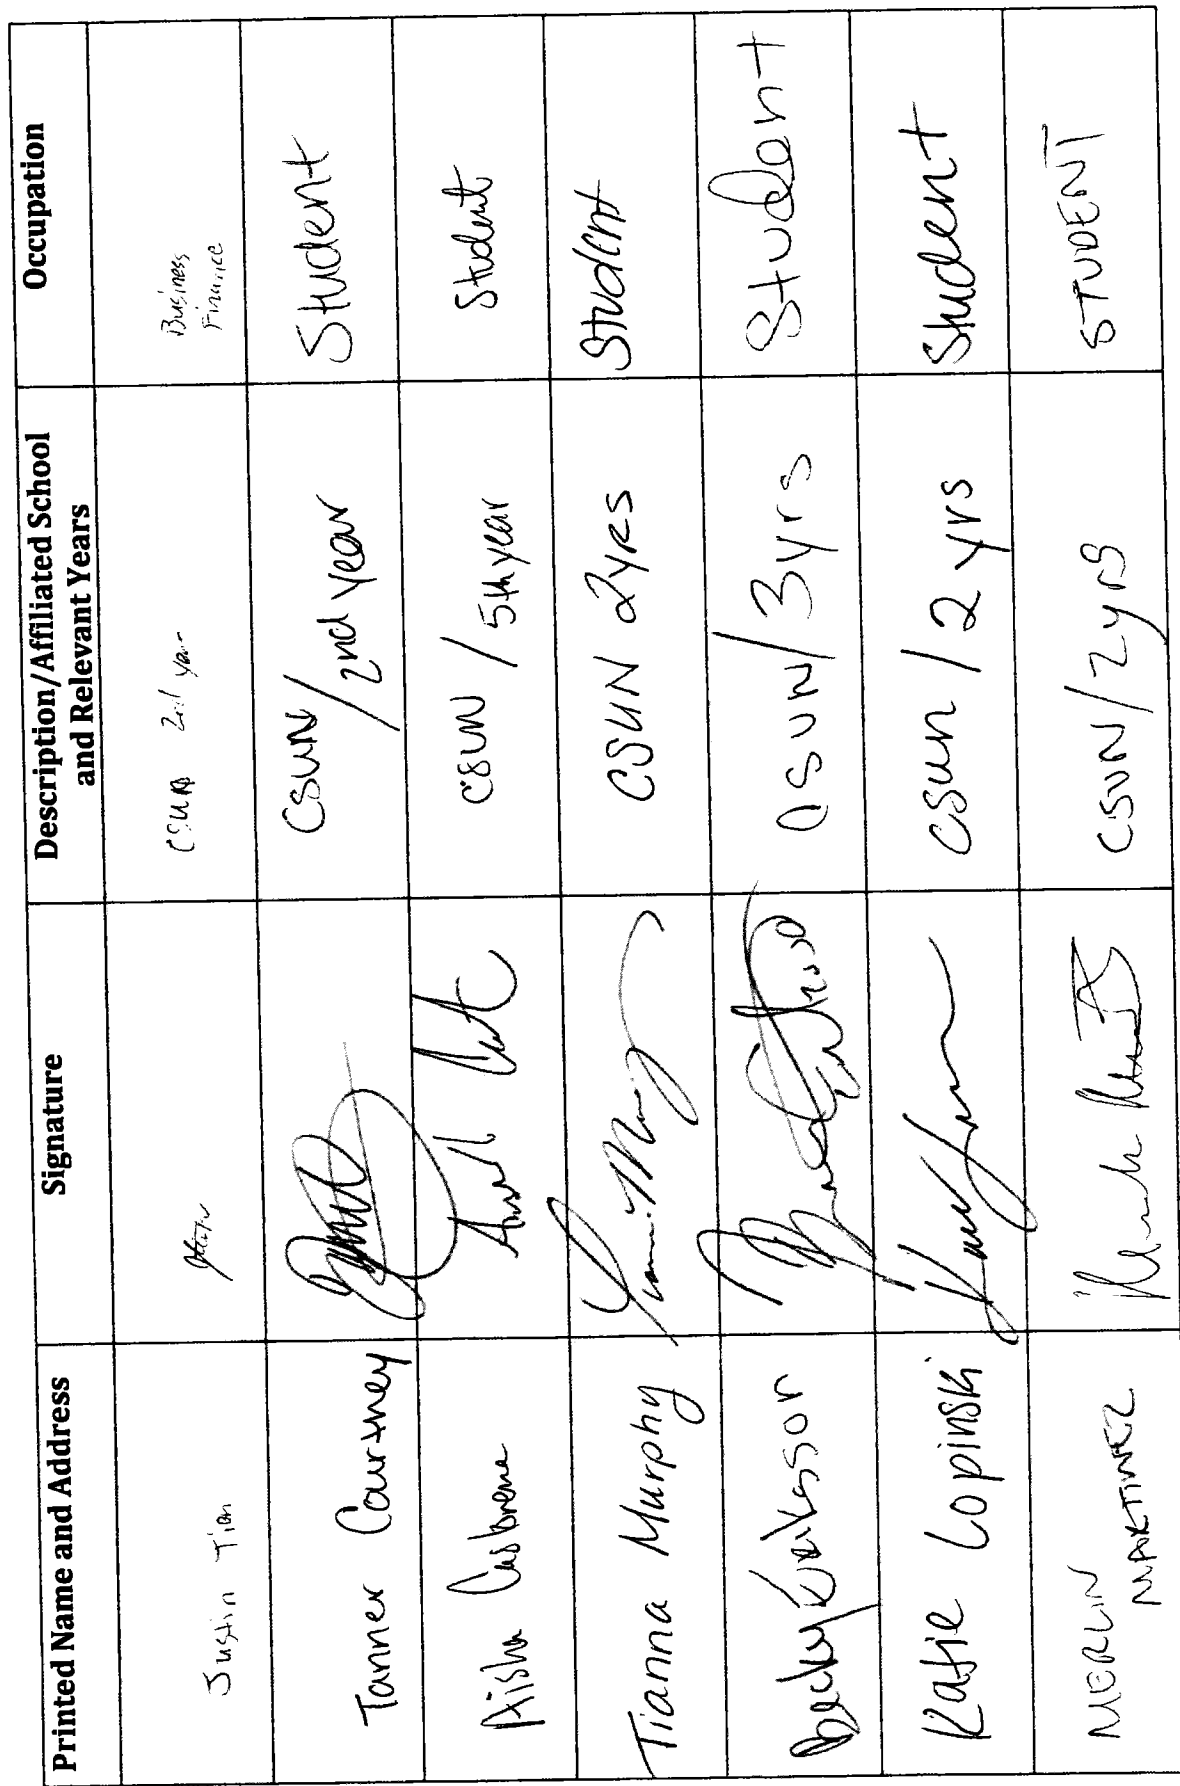 Printed Name and Address
Signature
Description/Affiliated School
and Relevant Years
Occupation
Justin Tian
CSUN 2nd year
Business
Finance
Tanner Courtney
CSUN
/2nd year
Student
Aisha
CSUN / 5th year
Student
Tianna Murphy
CSUN 2yrs
Student
Becky Eriksson
CSUN/3yrs
Student
Katie Lopinski
CSUN / 2 yrs
Student
MERLIN
MARTINEZ
CSUN/2yrs
STUDENT